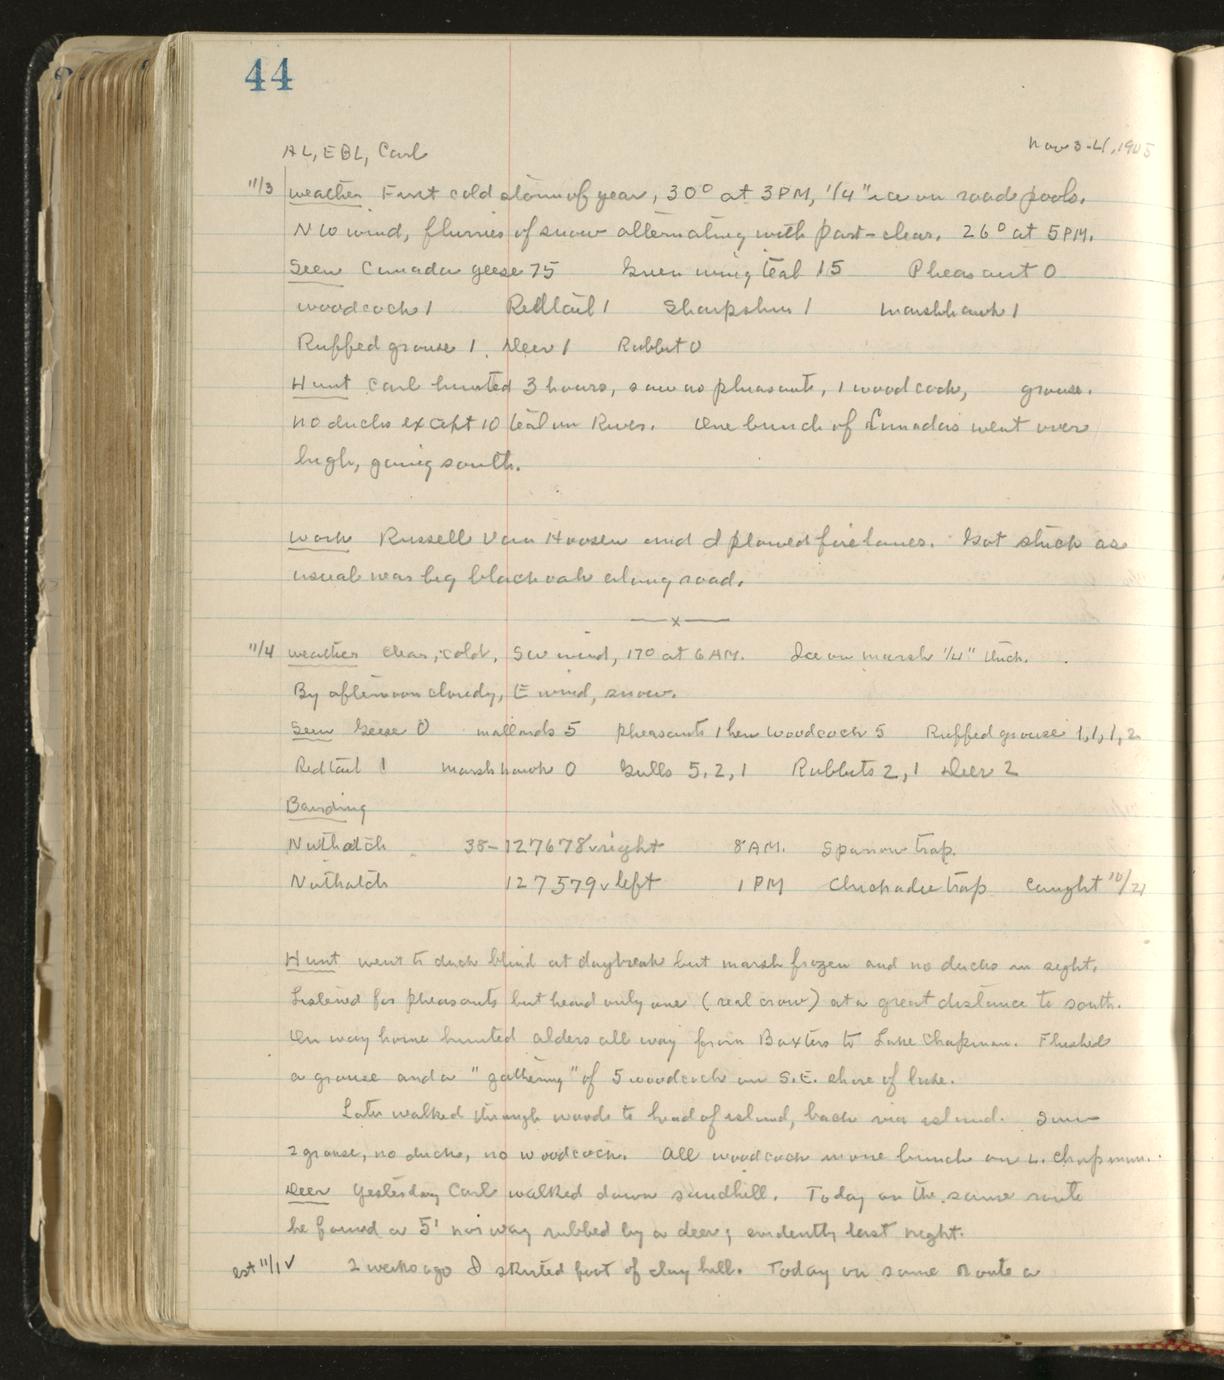 44
AL, EBL, Carl Nov 3-4, 1945
11/3 Weather First cold storm of year, 30° at 3PM, 1/4" ice on road pools.
NW wind, flurries of snow alternating with part-clear. 26° at 5PM.
Seen Canada geese 75 Green wing Teal 15 Pheasant 0
Woodcock 1 Redtail 1 Sharpshin 1 Marshhawk 1
Ruffed grouse 1. Deer 1 Rabbit 0
Hunt Carl hunted 3 hours, saw no pheasants, 1 woodcock, grouse.
No ducks except 10 teal on River. One bunch of Canadas went over
high, going south.
Work Russell Van Hoosen and I plowed firelanes. Got stuck as
usual near big black oak along road.
—x—
11/4 Weather Clear, cold, SW wind, 17° at 6 AM. Ice on marsh 1/4" thick.
By afternoon cloudy, E wind, snow.
Seen Geese 0 mallards 5 pheasants 1 hen Woodcock 5 Ruffed grouse 1,1,1,2
Redtail 1 Marshhawk 0 Gulls 5,2,1 Rabbits 2,1 Deer 2
Banding
Nuthatch 38-127678 ✓ right 8 AM. Sparrow trap.
Nuthatch 127579 ✓ left 1 PM Chickadee trap Caught 10/21
Hunt Went to duck blind at daybreak but marsh frozen and no ducks in sight.
Listened for pheasants but heard only one (real crow) at a great distance to south.
On way home hunted alders all way from Baxters to Lake Chapman. Flushed
a grouse and a "gathering" of 5 woodcock on S.E. shore of lake.
Later walked through woods to head of island, back via island. Saw
2 grouse, no ducks, no woodcock. All woodcock in one bunch on L. Chapman.
Deer Yesterday Carl walked down sandhill. Today on the same route
he found a 5' norway rubbed by a deer; evidently last night.
est 11/1 ✓ 2 weeks ago I skirted foot of clay hill. Today on same route a